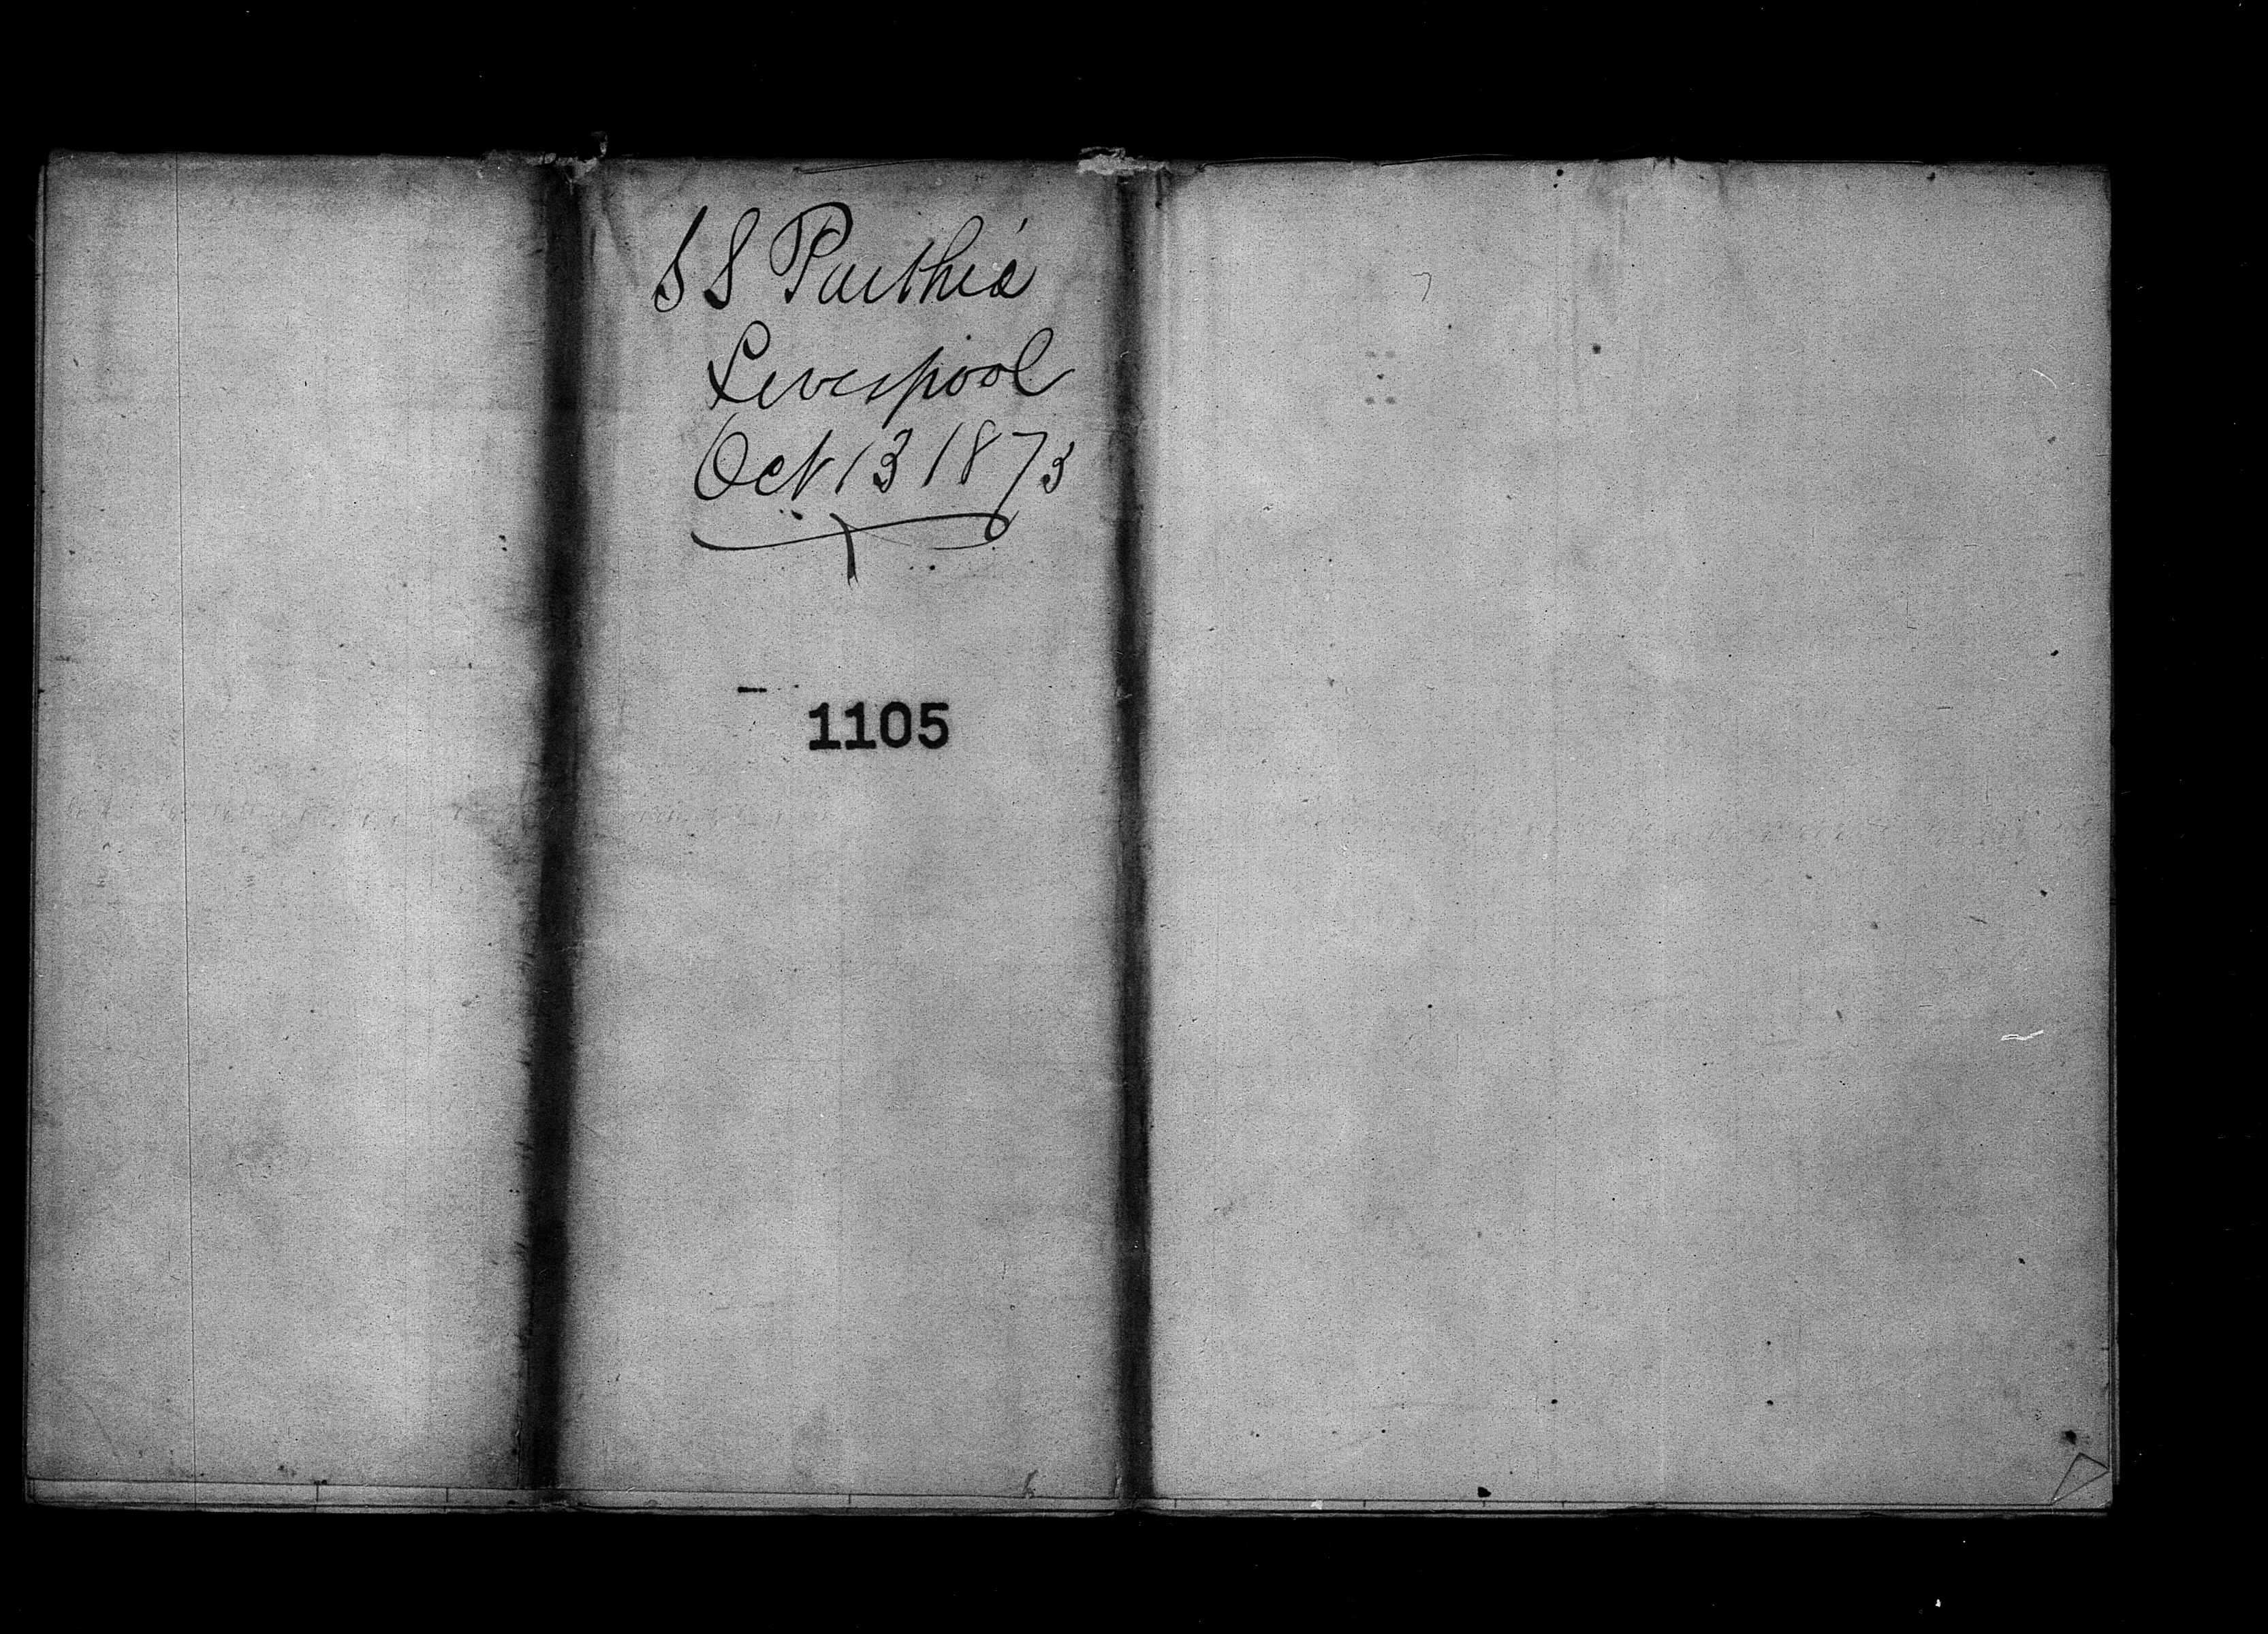 S S Parthia
Liverpool
Oct 13 1873
1105